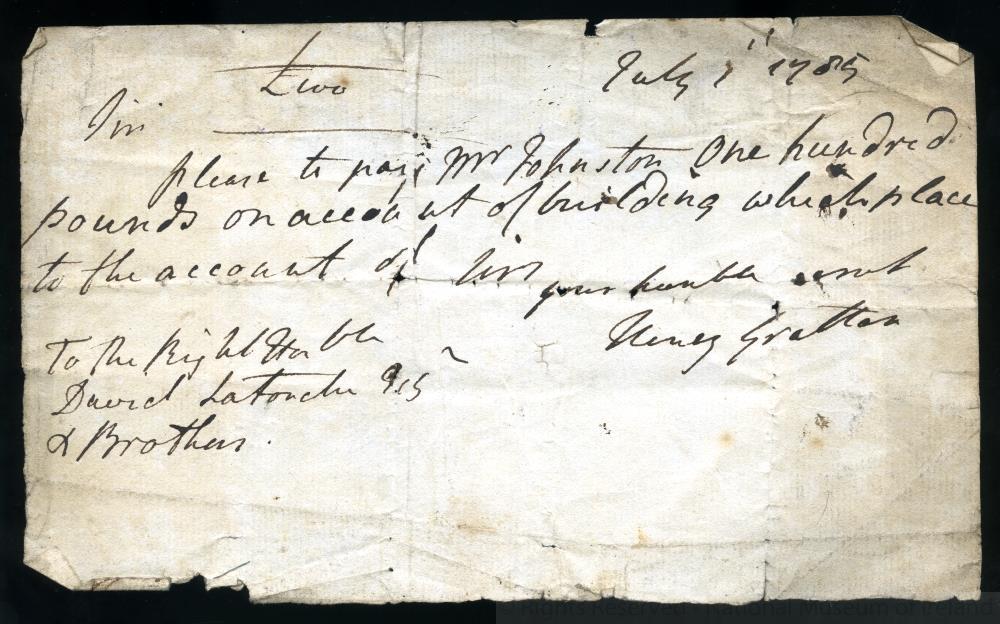 £100
July 1st 1785
Sir
please to pay Mr Johnston One hundred
pounds on account of building which place
to the account of Sir
your humble servt
Henry Grattan
To the Right Honble
David Latouche Esq
& Brothers.
Rights Reserved National Museum of Ireland